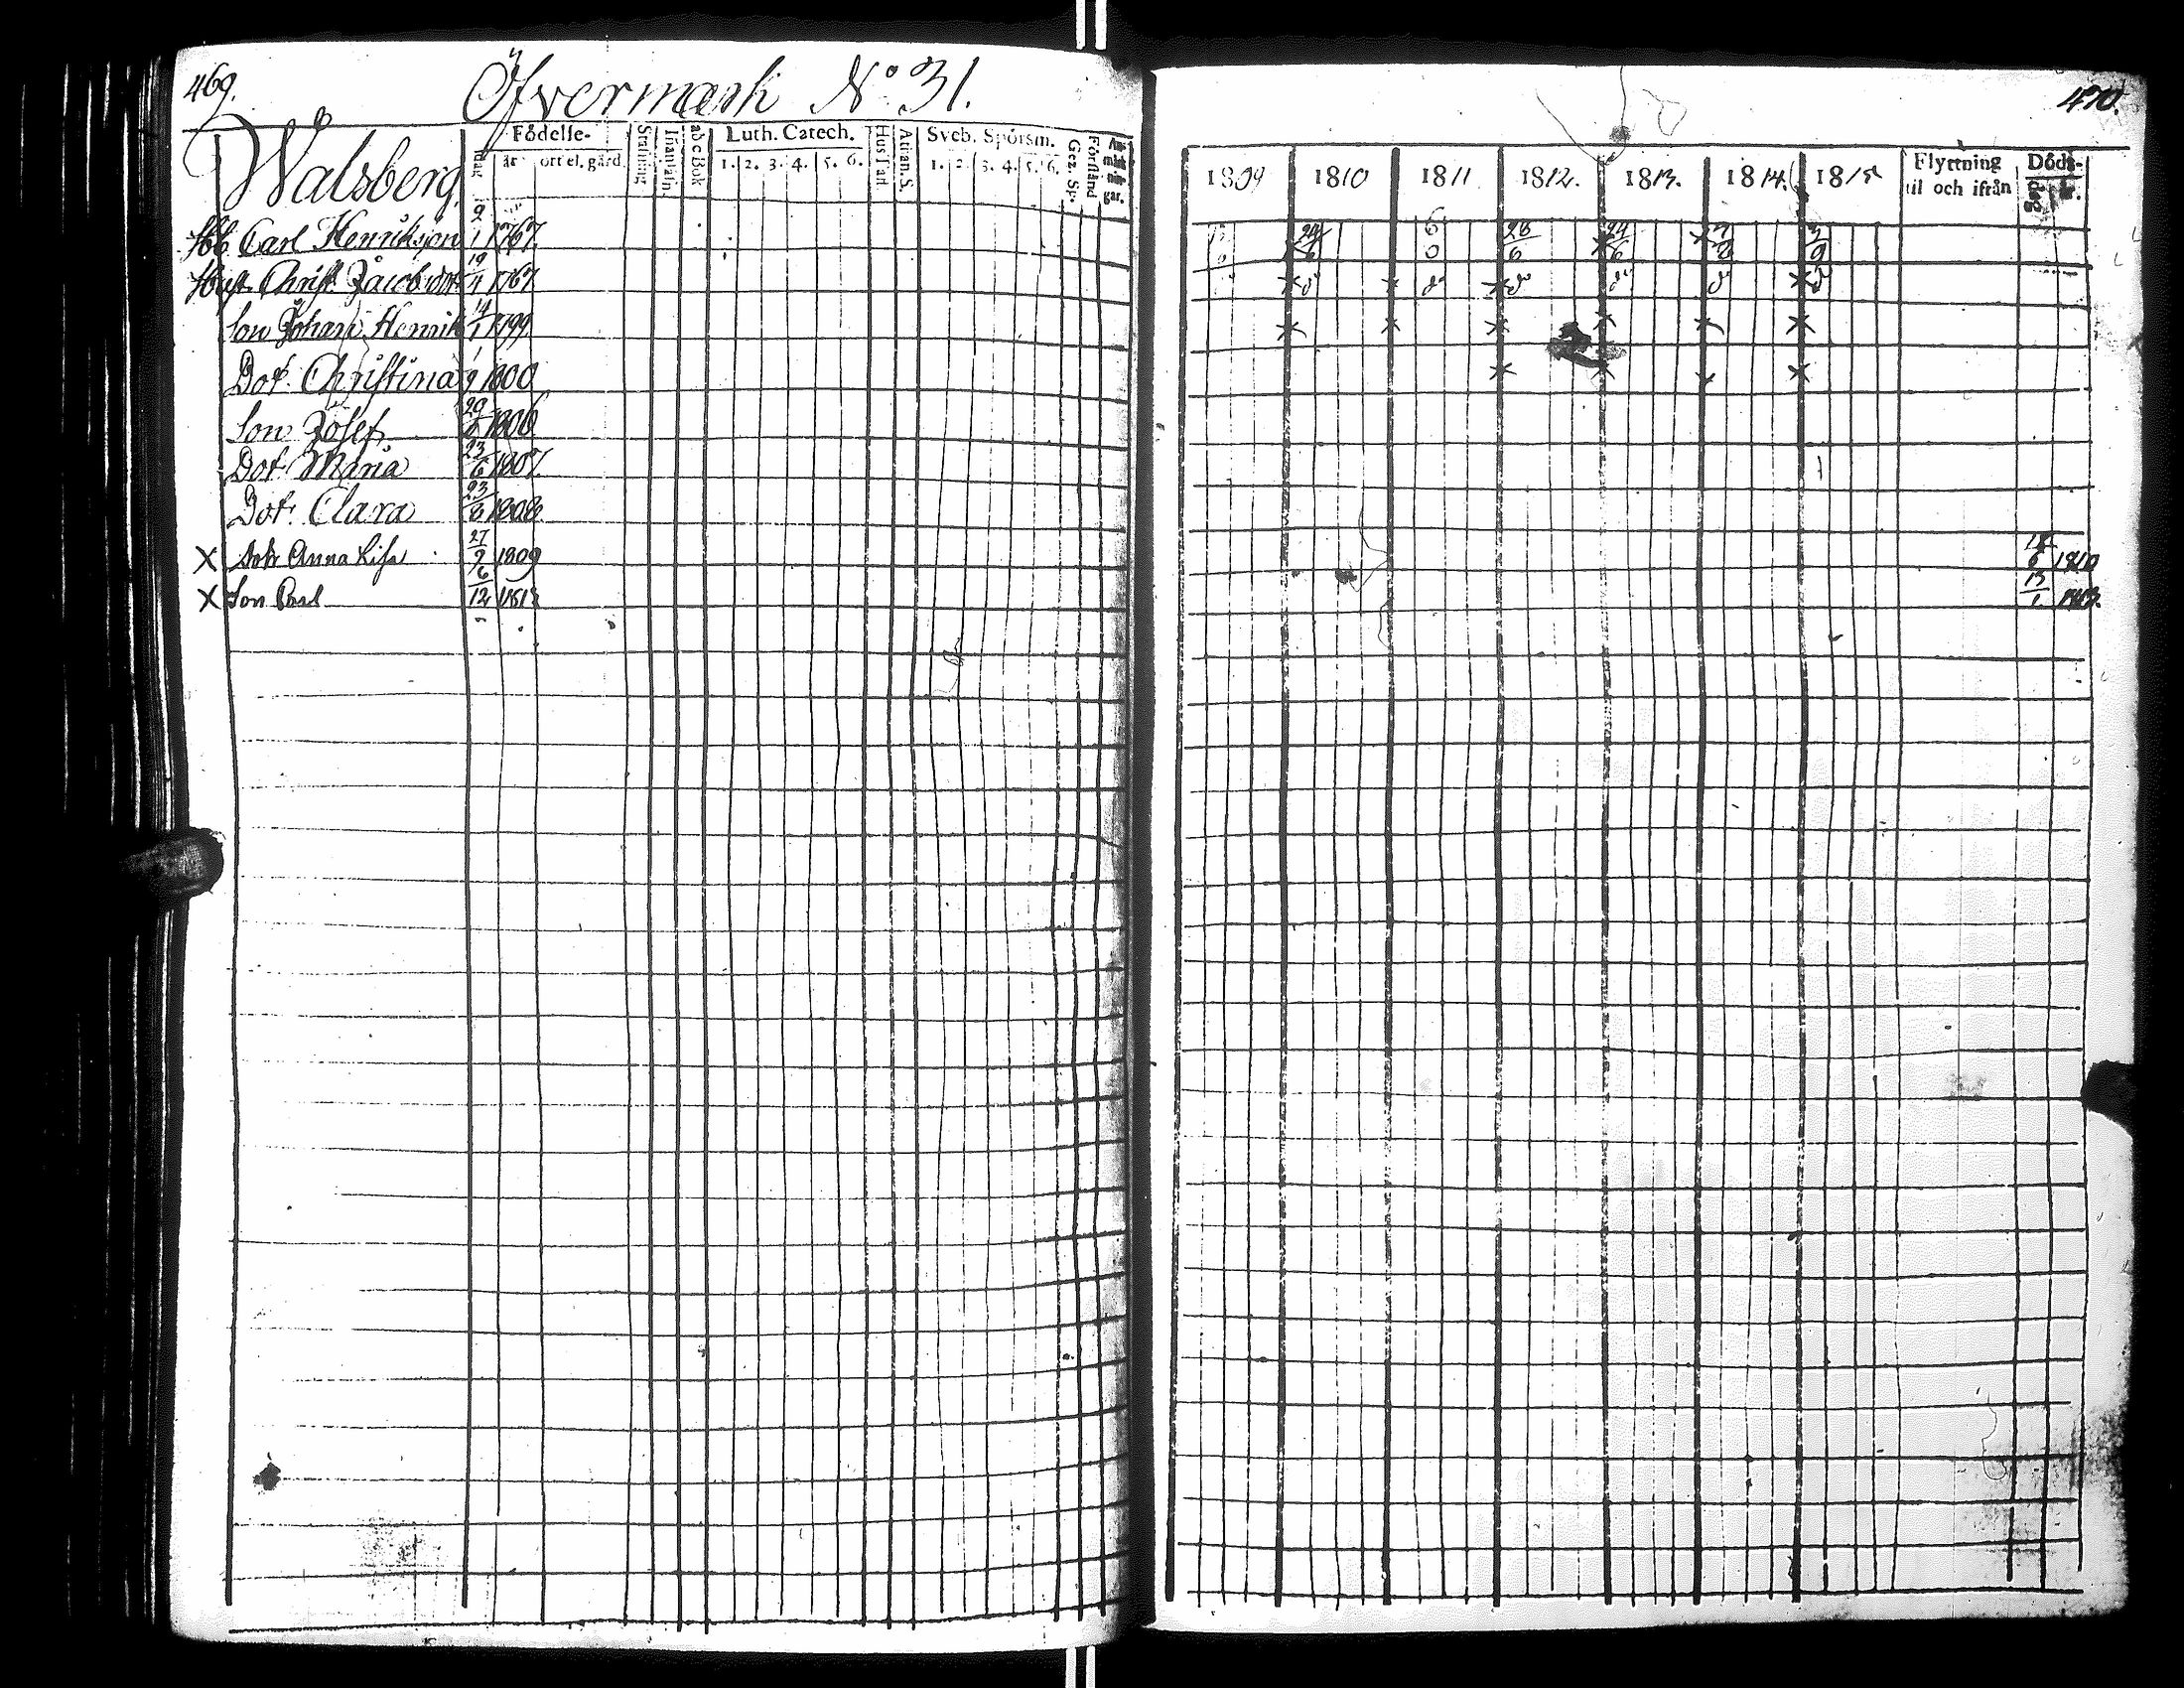 469.
Öfvermark No 31.
Wålsberg.
Födelse-
dag år ort el. gård.
Stafning
Innanläsn.
abc Bok
Luth. Catech.
1. 2. 3. 4. 5. 6.
Hus Tafl.
Athan. S.
Sveb. Spörsm.
1. 2. 3. 4. 5. 6.
Gez. Sp.
Förstånd
An-
märk
nin-
gar.
Hbb Carl Henriksson 2/1 1767.
Hust. Christ. Jacobsdotr 19/4 1767
Son Johan Henrik 14/1 1799
Dot. Christina 1/9 1800
Son Josef 1806
Dot Maria 23/6 1807.
Dot. Clara 23/8 1808
X Dotr Anna Lisa 27/9 1809
X Son Carl 6/12 181
470.
1809 1810 1811 1812. 1813. 1814. 1815
Flyttning
til och ifrån
Döds-
dag år.
24/6 6 26/6 24/6
X X X X X
X X X X X X
X X X X
1810
1813.